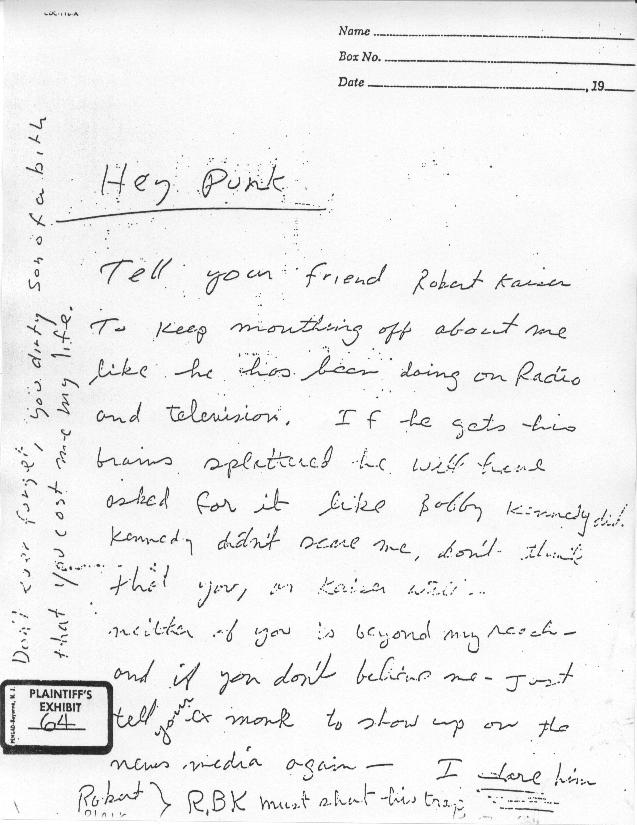 Name
Box No.
Date , 19
Hey Punk
Tell your friend Robert Kaiser
To keep mouthing off about me
like he has been doing on Radio
and television. If he gets his
brains splattered he will have
asked for it like Bobby Kennedy did.
Kennedy didn't scare me, don't think
that you, or Kaiser will...
neither of you is beyond my reach-
and if you don't believe me- Just
tell your ex monk to show up on the
news media again- I dare him
Robert } R.BK must shut his trap
Don't ever forget, you dirty son of a bith
that you cost me my life.
PLAINTIFF'S
EXHIBIT
64